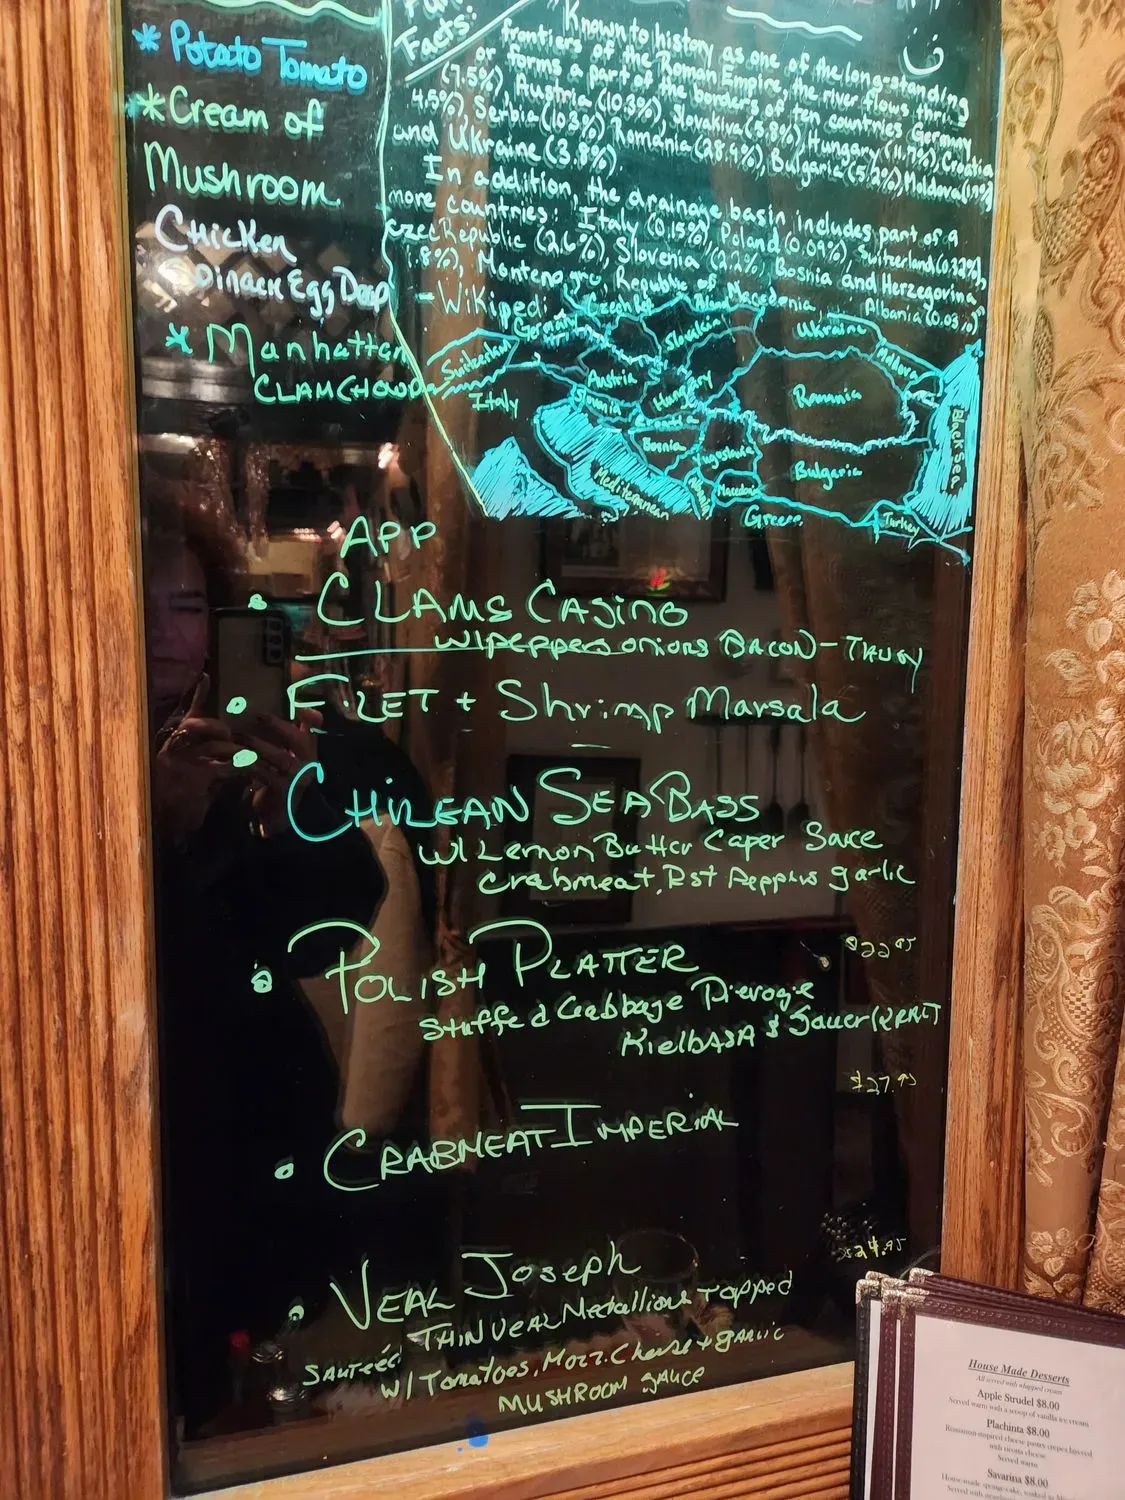 * Potato Tomato
* Cream of
Mushroom
Chicken
Spinach Egg Drop
* Manhattan
CLAM CHOWDA
Fun
Facts:
Known to history as one of the long-standing
frontiers of the Roman Empire, the river flows thru
or forms a part of the borders of ten countries Germany
(7.5%), Austria (10.3%), Slovakiva (5.8%), Hungary (11.7%), Croatia
4.5%), Serbia (10.3%), Romania (28.9%), Bulgaria (5.2%) Moldova (1.7%)
and Ukraine (3.8%).
In addition, the drainage basin includes part of 9
more countries: Italy (0.15%), Poland (0.09%), Switzerland (0.32%),
Czec Republic (2.6%), Slovenia (2.2%), Bosnia and Herzegovina
.8%), Montenegro, Republic of Macedonia, Albania (0.03%)
- Wikipedi
Germany
Slovakia
Ukraine
Moldova
Switzerland
Austria
Hungary
Romnia
Italy
Slovenia
Bosnia
Yugoslavia
Bulgaria
Black Sea
Mediterranean
Macedonia
Greece
Turkey
APP
• CLAMS CASINO
W/ PEPPERS ONIONS BACON -
• FILET + Shrimp Marsala
• CHILEAN SEA BASS
W/ Lemon Butter Caper Sauce
Crabmeat, Rst Peppers garlic
$22.95
• POLISH PLATTER
Stuffed Cabbage Pierogie
KielBASA & SauerKRAUT
$27.95
• CRABMEAT IMPERIAL
$24.95
• VEAL Joseph
THIN VEAL Medallions Topped
SAUTEÉD W/ Tomatoes, Mozz. Cheese + gARLIC
MUSHROOM SAUCE
House Made Desserts
All served with whipped cream
Apple Strudel $8.00
Served warm with a scoop of vanilla ice cream
Plachinta $8.00
Romanian inspired cheese pastry crepes layered
with ricotta cheese
Served warm
Savarina $8.00
House-made sponge-cake, soaked in
Served with